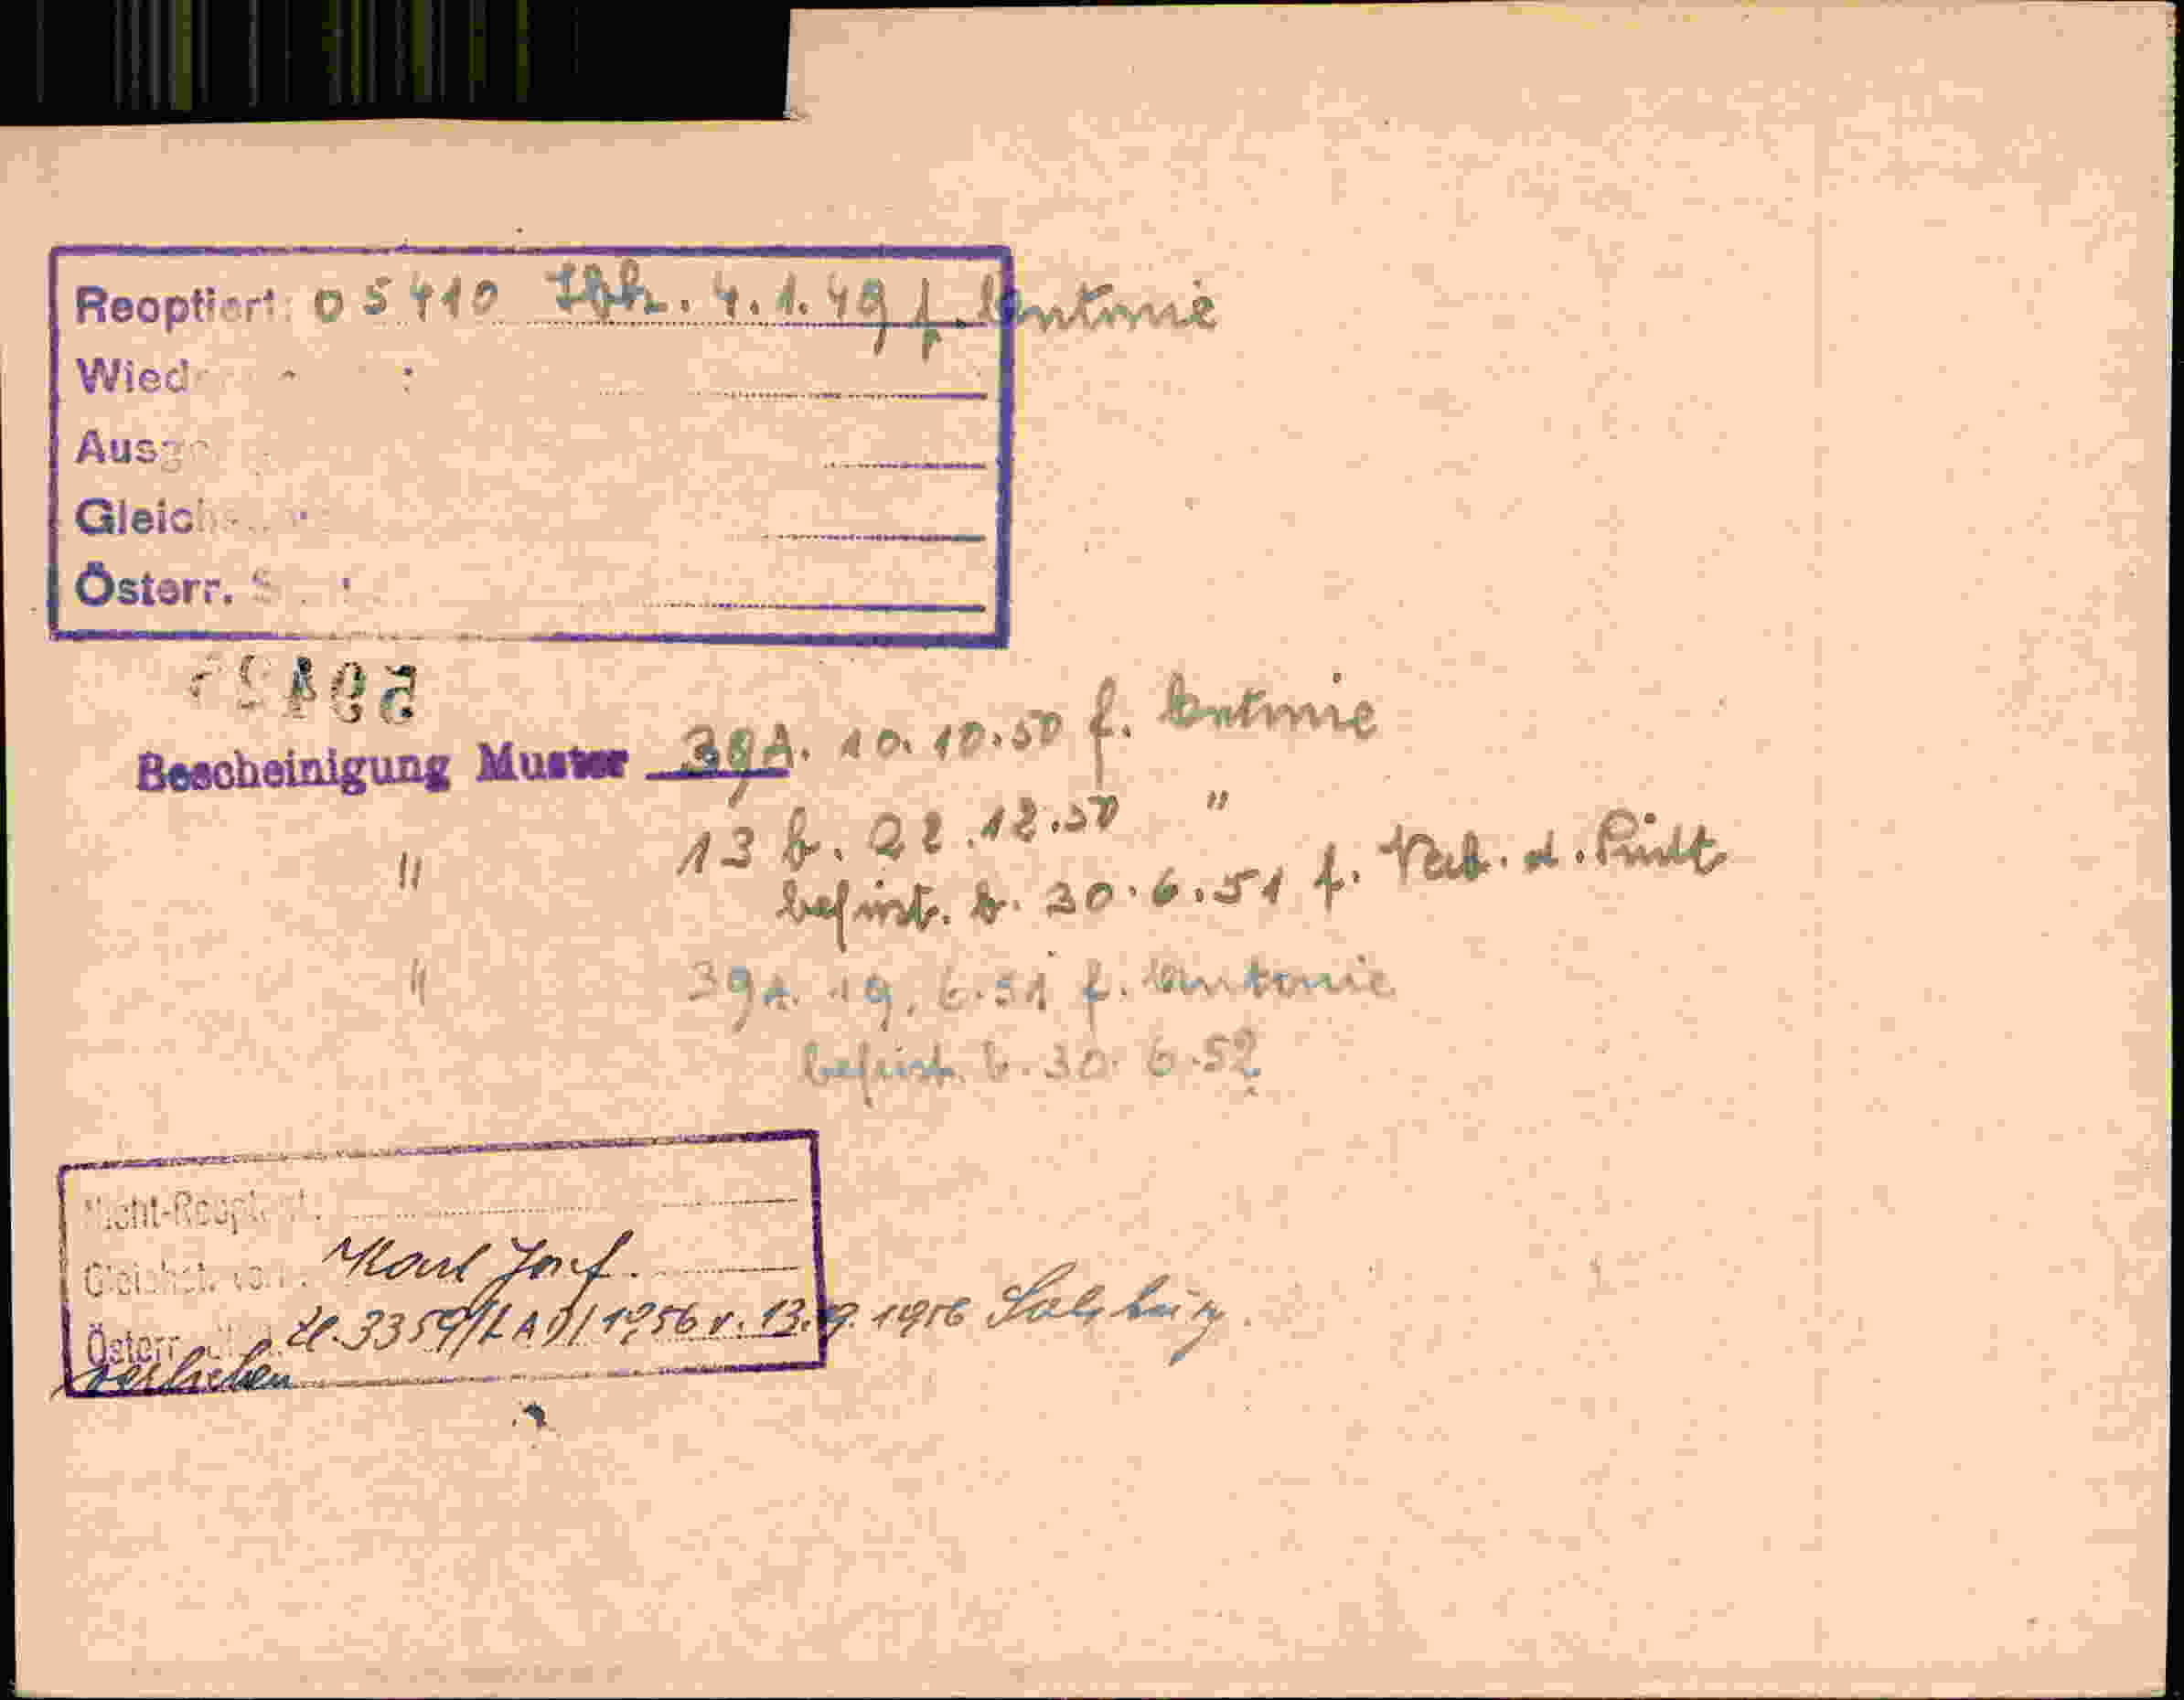 Reoptiert: 05410 Ibk. 4.1.49 f. Antonie
Wied :
Ausge
Gleich
Österr. S :
Bescheinigung Muster 39A. 10.10.50 f. Antonie
" 13 b. 22.12.50 "
befrist. b. 30.6.51 f.
" 39A. 19.6.51 f. Antonie
befrist. b. 30.6.52
Nicht-Reoptiert:
Gleichst. von: Karl Josef.
Österr. Zl. 3359/LAD/1956 v. 13.9.1956 Salzburg.
verliehen